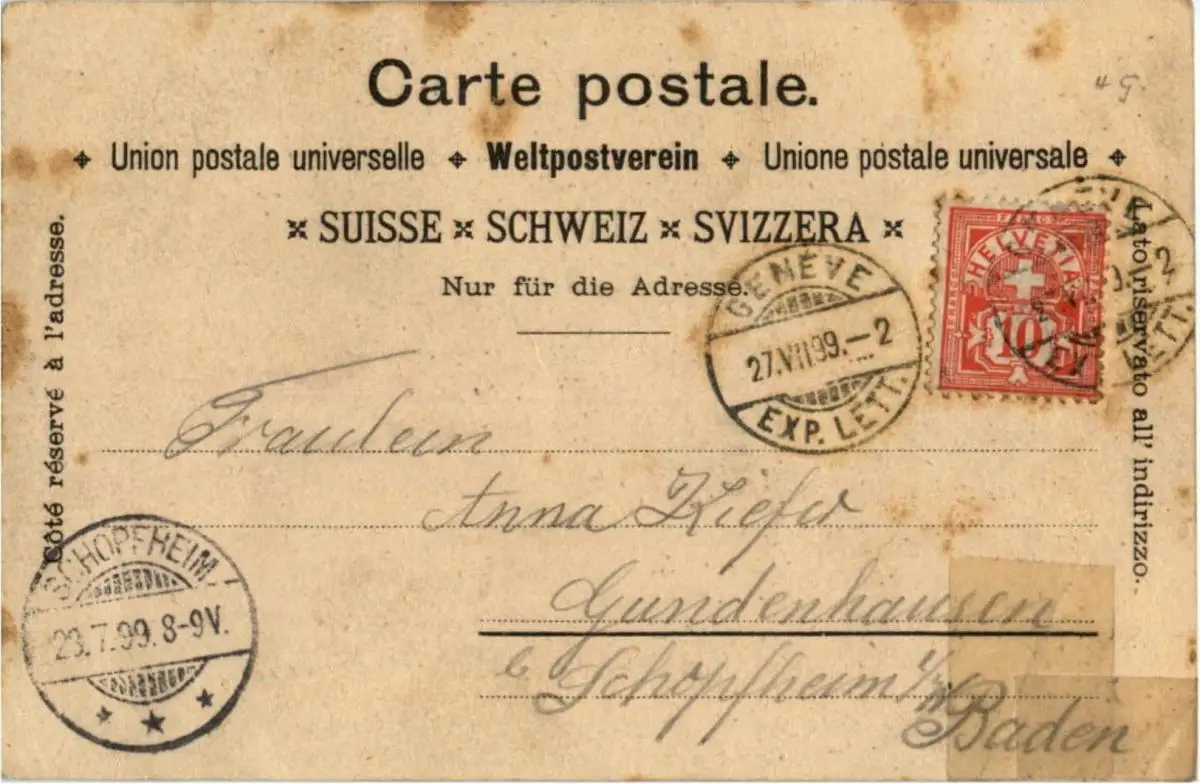 Carte postale.
Union postale universelle Weltpostverein Unione postale universale
SUISSE SCHWEIZ SVIZZERA
Nur für die Adresse.
Côté réservé à l'adresse.
Lato riservato all' indirizzo.
HELVETIA
10
GENÈVE
27.VII.99.—2
EXP. LETT.
2
EX LETT.
Fräulein
Anna Kiefer
Gündenhausen
b Schopfheim i/W
Baden
SCHOPFHEIM
7.99.8-9V.